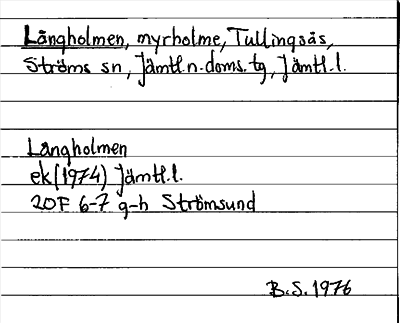 Långholmen, myrholme, Tullingsås,
Ströms sn, Jämtl.n.doms.tg, Jämtl.l.
Långholmen
ek(1974) Jämtl.l.
20F 6-7 g-h Strömsund
B.S. 1976